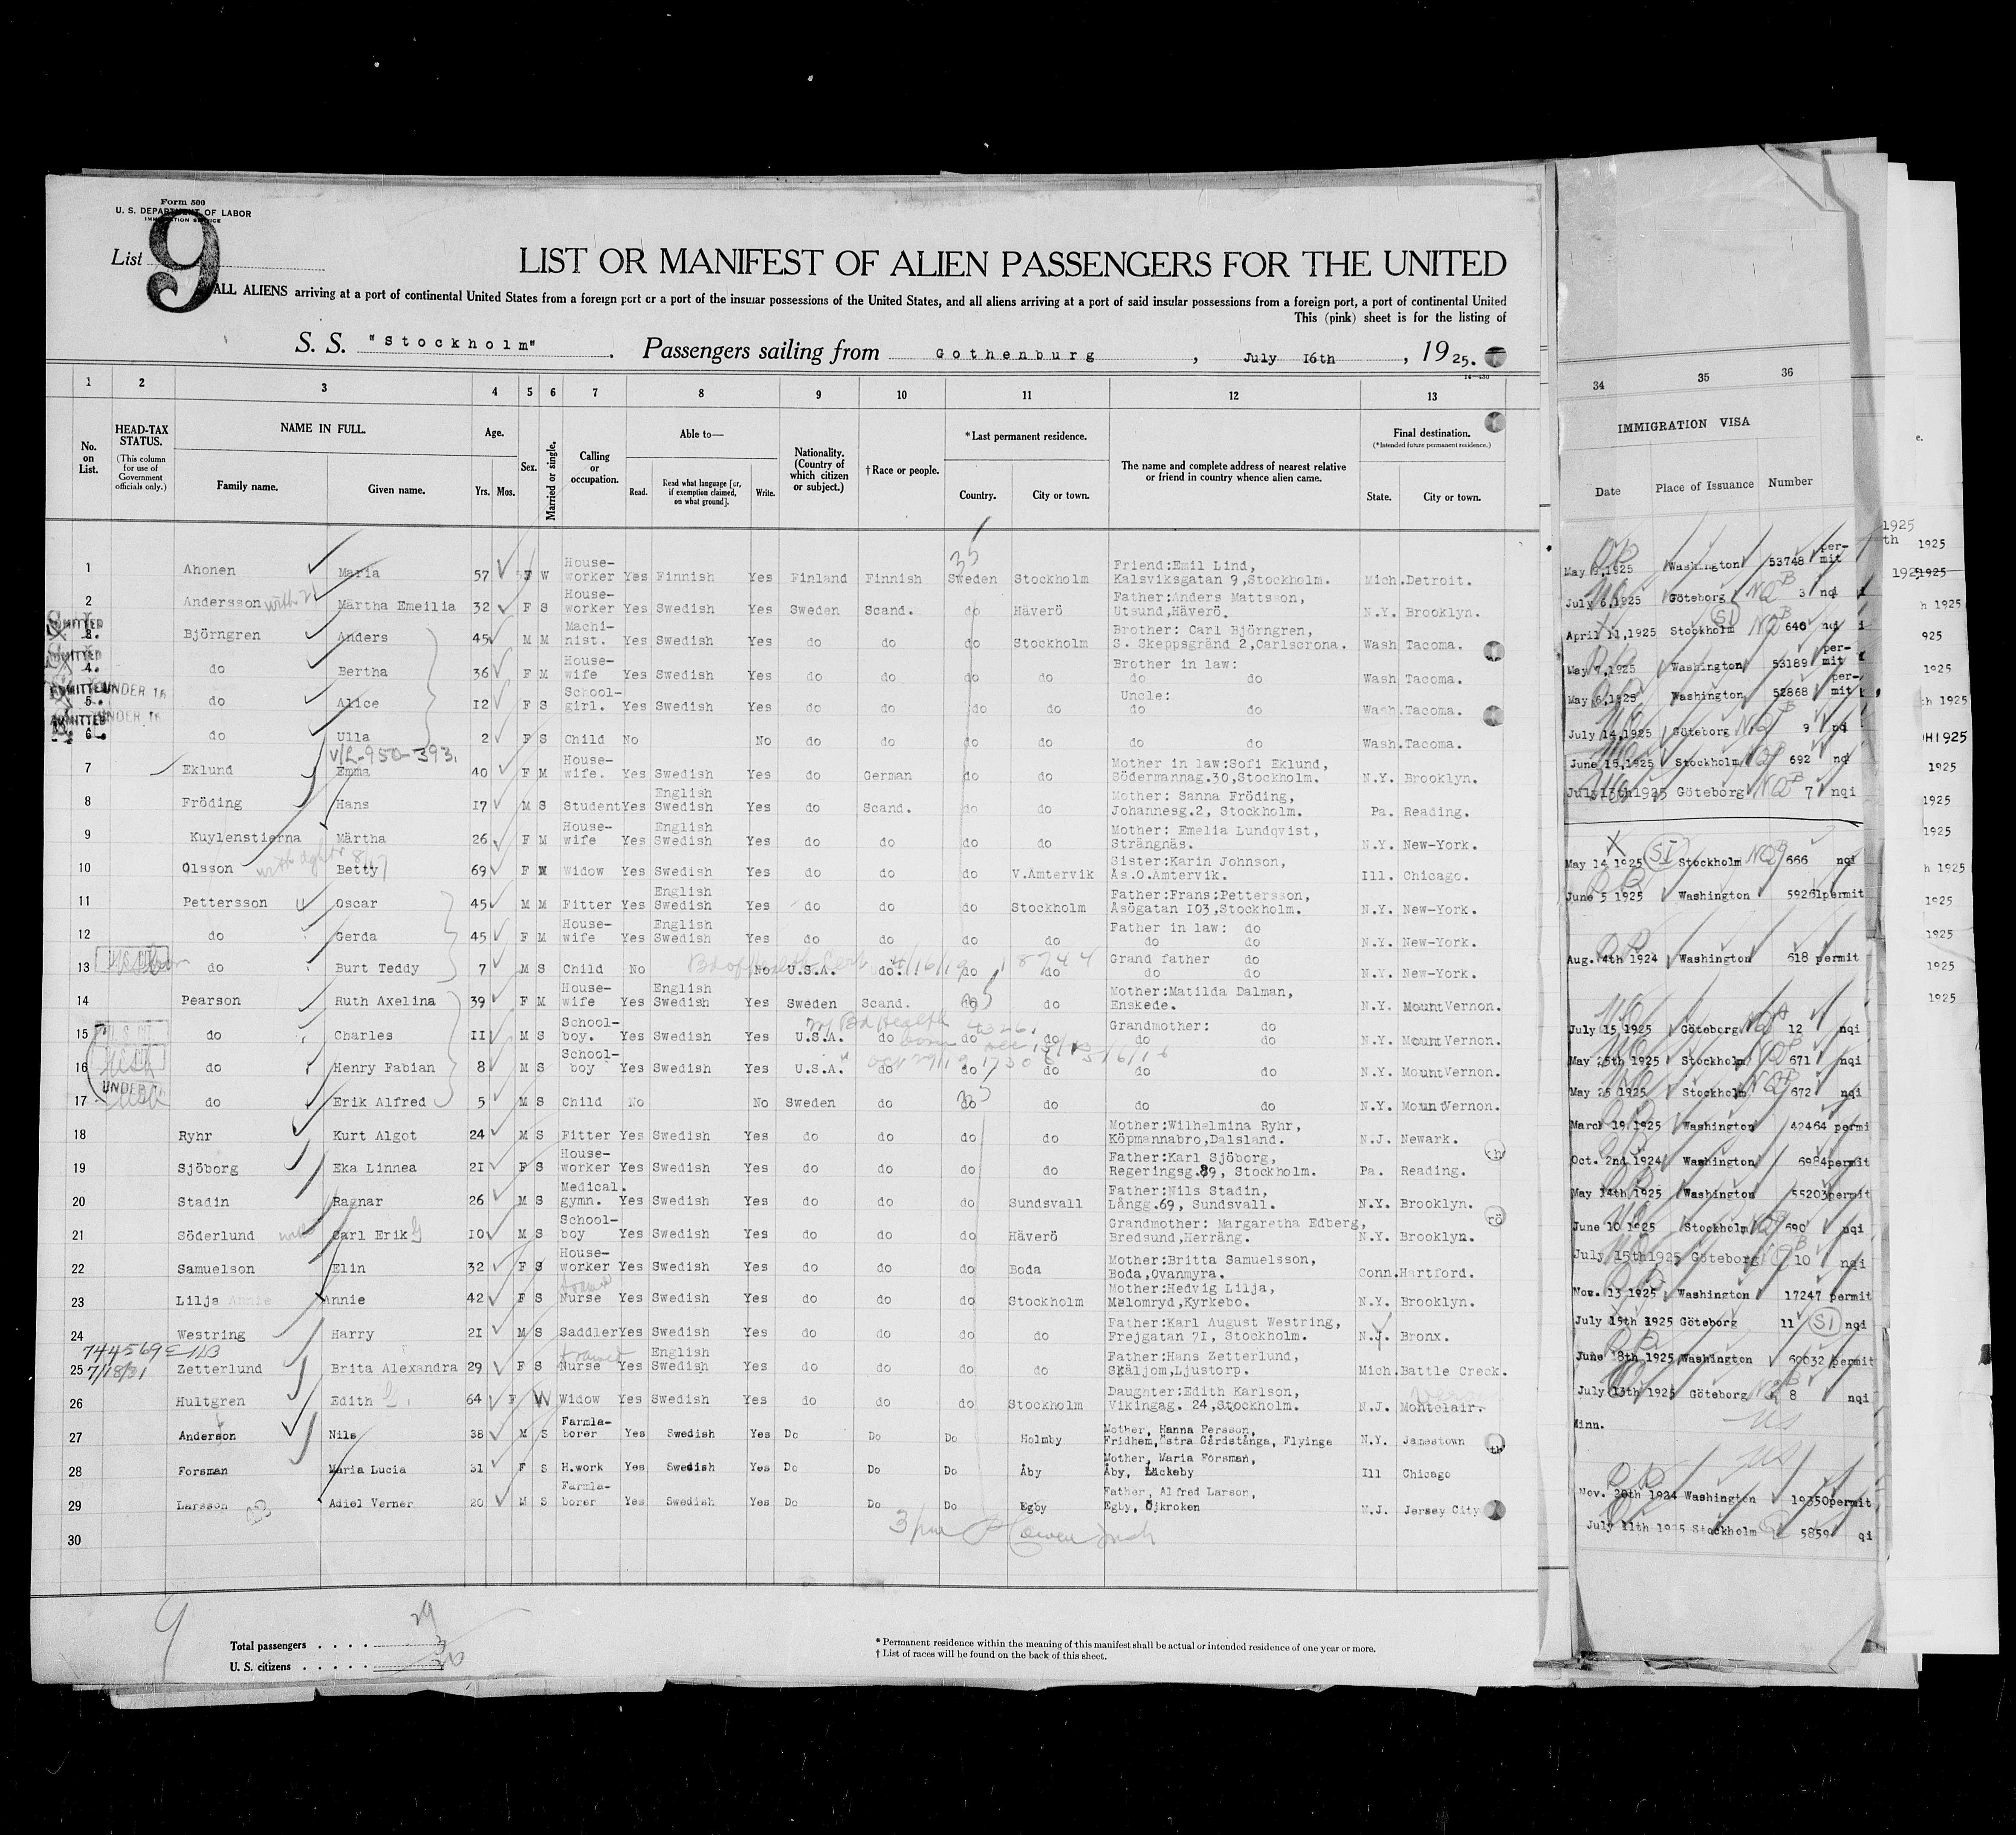 Form 500
U. S. DEPARTMENT OF LABOR
IMMIGRATION SERVICE
List 9
LIST OR MANIFEST OF ALIEN PASSENGERS FOR THE UNITED
ALL ALIENS arriving at a port of continental United States from a foreign port or a port of the insular possessions of the United States, and all aliens arriving at a port of said insular possessions from a foreign port, a port of continental United
This (pink) sheet is for the listing of
S. S. "Stockholm". Passengers sailing from Gothenburg, July 16th, 1925.
1 2 3 4 5 6 7 8 9 10 11 12 13
No. on List.
HEAD-TAX STATUS.
(This column for use of Government officials only.)
NAME IN FULL.
Family name. Given name.
Age.
Yrs. Mos.
Sex.
Married or single.
Calling or occupation.
Able to—
Read. Read what language [or, if exemption claimed, on what ground]. Write.
Nationality. (Country of which citizen or subject.)
†Race or people.
*Last permanent residence.
Country. City or town.
The name and complete address of nearest relative or friend in country whence alien came.
Final destination.
(*Intended future permanent residence.)
State. City or town.
34 35 36
IMMIGRATION VISA
Date Place of Issuance Number
1 Ahonen Maria 57 W House-worker Yes Finnish Yes Finland Finnish Sweden Stockholm Friend:Emil Lind, Kalsviksgatan 9,Stockholm. Mich. Detroit.
2 Andersson Märtha Emeilia 32 F S House-worker Yes Swedish Yes Sweden Scand. do Häverö Father:Anders Mattsson, Utsund,Häverö. N.Y. Brooklyn.
3 Björngren Anders 45 M M Machi-nist. Yes Swedish Yes do do do Stockholm Brother: Carl Björngren, S. Skeppsgränd 2,Carlscrona. Wash Tacoma.
4 do Bertha 36 F M House-wife Yes Swedish Yes do do do do Brother in law: do do Wash Tacoma.
5 UNDER 16 do Alice 12 F S School-girl. Yes Swedish Yes do do do do Uncle: do do Wash. Tacoma.
6 UNDER 16 do Ulla 2 F S Child No No do do do do do do Wash. Tacoma.
V/L-950-393.
7 Eklund Emma 40 F M House-wife. Yes Swedish Yes do German do do Mother in law:Sofi Eklund, Södermannag.30,Stockholm. N.Y. Brooklyn.
8 Fröding Hans 17 M S Student Yes English Swedish Yes do Scand. do do Mother: Sanna Fröding, Johannesg.2, Stockholm. Pa. Reading.
9 Kuylenstierna Märtha 26 F M House-wife Yes English Swedish Yes do do do do Mother: Emelia Lundqvist, Strängnäs. N.Y. New-York.
10 Olsson Betty 69 F W Widow Yes Swedish Yes do do do V.Ämtervik Sister:Karin Johnson, Ås.O.Ämtervik. Ill. Chicago.
11 Pettersson Oscar 45 M M Fitter Yes English Swedish Yes do do do Stockholm Father:Frans:Pettersson, Åsögatan 103,Stockholm. N.Y. New-York.
12 do Gerda 45 F M House-wife Yes English Swedish Yes do do do do Father in law: do do do N.Y. New-York.
13 do Burt Teddy 7 M S Child No No U.S.A. do do do Grand father do do do N.Y. New-York.
14 Pearson Ruth Axelina 39 F M House-wife Yes English Swedish Yes Sweden Scand. do do Mother:Matilda Dalman, Enskede. N.Y. Mount Vernon.
15 do Charles 11 M S School-boy. Yes Swedish Yes U.S.A. do do do Grandmother: do do do N.Y. Mount Vernon.
16 do Henry Fabian 8 M S School-boy Yes Swedish Yes U.S.A. do do do do do N.Y. Mount Vernon.
17 do Erik Alfred 5 M S Child No No Sweden do do do do do N.Y. Mount Vernon.
18 Ryhr Kurt Algot 24 M S Fitter Yes Swedish Yes do do do do Mother:Wilhelmina Ryhr, Köpmannabro,Dalsland. N.J. Newark.
19 Sjöborg Eka Linnea 21 F S House-worker Yes Swedish Yes do do do do Father:Karl Sjöborg, Regeringsg.89, Stockholm. Pa. Reading.
20 Stadin Ragnar 26 M S Medical. gymn. Yes Swedish Yes do do do Sundsvall Father:Nils Stadin, Långg.69, Sundsvall. N.Y. Brooklyn.
21 Söderlund Carl Erik 10 M S School-boy Yes Swedish Yes do do do Häverö Grandmother: Margaretha Edberg, Bredsund,Herräng. N.Y. Brooklyn.
22 Samuelson Elin 32 F S House-worker Yes Swedish Yes do do do Boda Mother:Britta Samuelsson, Boda,Ovanmyra. Conn. Hartford.
23 Lilja Annie 42 F S Nurse Yes Swedish Yes do do do Stockholm Mother:Hedvig Lilja, Mälomryd,Kyrkebo. N.Y. Brooklyn.
24 Westring Harry 21 M S Saddler Yes Swedish Yes do do do do Father:Karl August Westring, Frejgatan 71, Stockholm. N.Y. Bronx.
25 Zetterlund Brita Alexandra 29 F S Nurse Yes English Swedish Yes do do do do Father:Hans Zetterlund, Skäljom,Ljustorp. Mich. Battle Creek.
26 Hultgren Edith 64 F W Widow Yes Swedish Yes do do do Stockholm Daughter:Edith Karlson, Vikingag. 24,Stockholm. N.J. Montclair.
27 Anderson Nils 38 M S Farmla-borer Yes Swedish Yes Do Do Do Holmby Mother, Hanna Persson, Fridhem,"stra Gårdstånga, Flyinge N.Y. Jamestown
28 Forsman Maria Lucia 31 F S H.work Yes Swedish Yes Do Do Do Åby Mother, Maria Forsman, Åby, Läckeby Ill Chicago
29 Larsson Adiel Verner 20 M S Farmla-borer Yes Swedish Yes Do Do Do Egby Father, Alfred Larson, Egby, Öjkroken N.J. Jersey City
30
May 1925 Washington 53748 per-mit
July 6,1925 Göteborg 3 nqi
April 11,1925 Stockholm 640 nqi
May 7,1925 Washington 53189 per-mit
May 6,1925 Washington 52868 per-mit
July 14,1925 Göteborg 9 nqi
June 15,1925 Stockholm 692 nqi
July 13th 1925 Göteborg 7 nqi
May 14 1925 SI Stockholm 666 nqi
June 5 1925 Washington 59261 permit
Aug. 14th 1924 Washington 618 permit
July 15 1925 Göteborg 12 nqi
May 25th 1925 Stockholm 671 nqi
May 25 1925 Stockholm 672 nqi
March 19 1925 Washington 42464 permi
Oct. 2nd 1924 Washington 6984 permit
May 14th 1925 Washington 55203 permit
June 10 1925 Stockholm 690 nqi
July 15th 1925 Göteborg 10 nqi
Nov. 13 1925 Washington 17247 permit
July 15th 1925 Göteborg 11 SI nqi
June 18th 1925 Washington 60032 permit
July 13th 1925 Göteborg 8 nqi
Minn.
Nov. 20th 1924 Washington 19350 permit
July 11th 1925 Stockholm 5859 qi
Total passengers . . . . 29
U. S. citizens . . . . .
* Permanent residence within the meaning of this manifest shall be actual or intended residence of one year or more.
† List of races will be found on the back of this sheet.